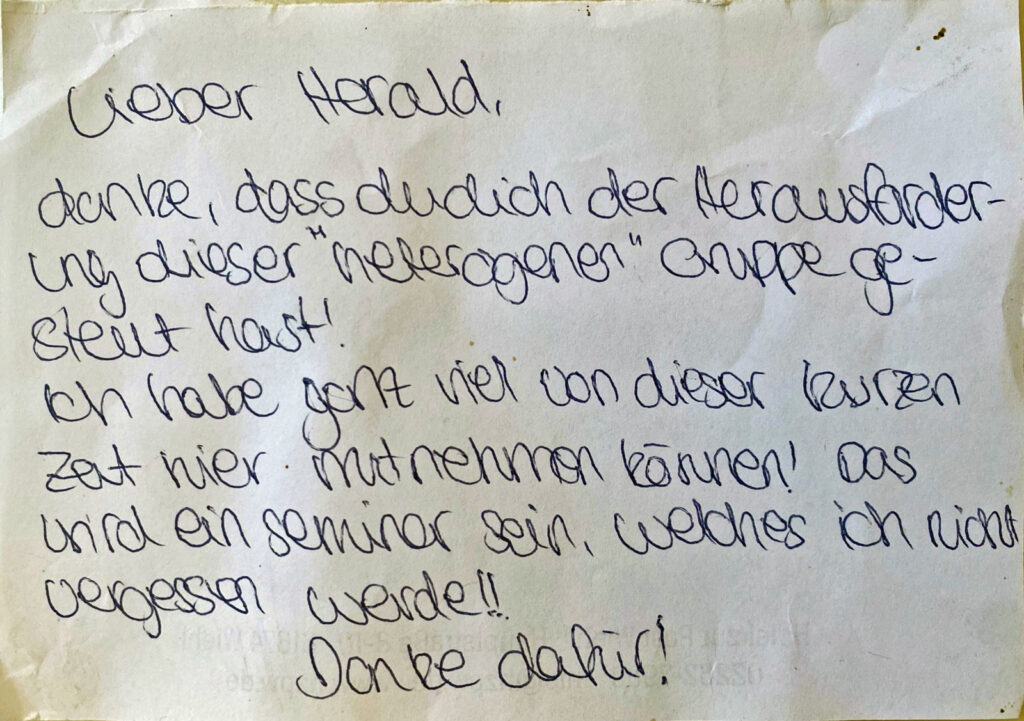 Lieber Herald,
danke, dass du dich der Herausforder-
ung dieser "heterogenen" Gruppe ge-
stellt hast!
Ich habe ganz viel von dieser kurzen
Zeit hier mitnehmen können! Das
wird ein Seminar sein, welches ich nicht
vergessen werde!!
Danke dafür!